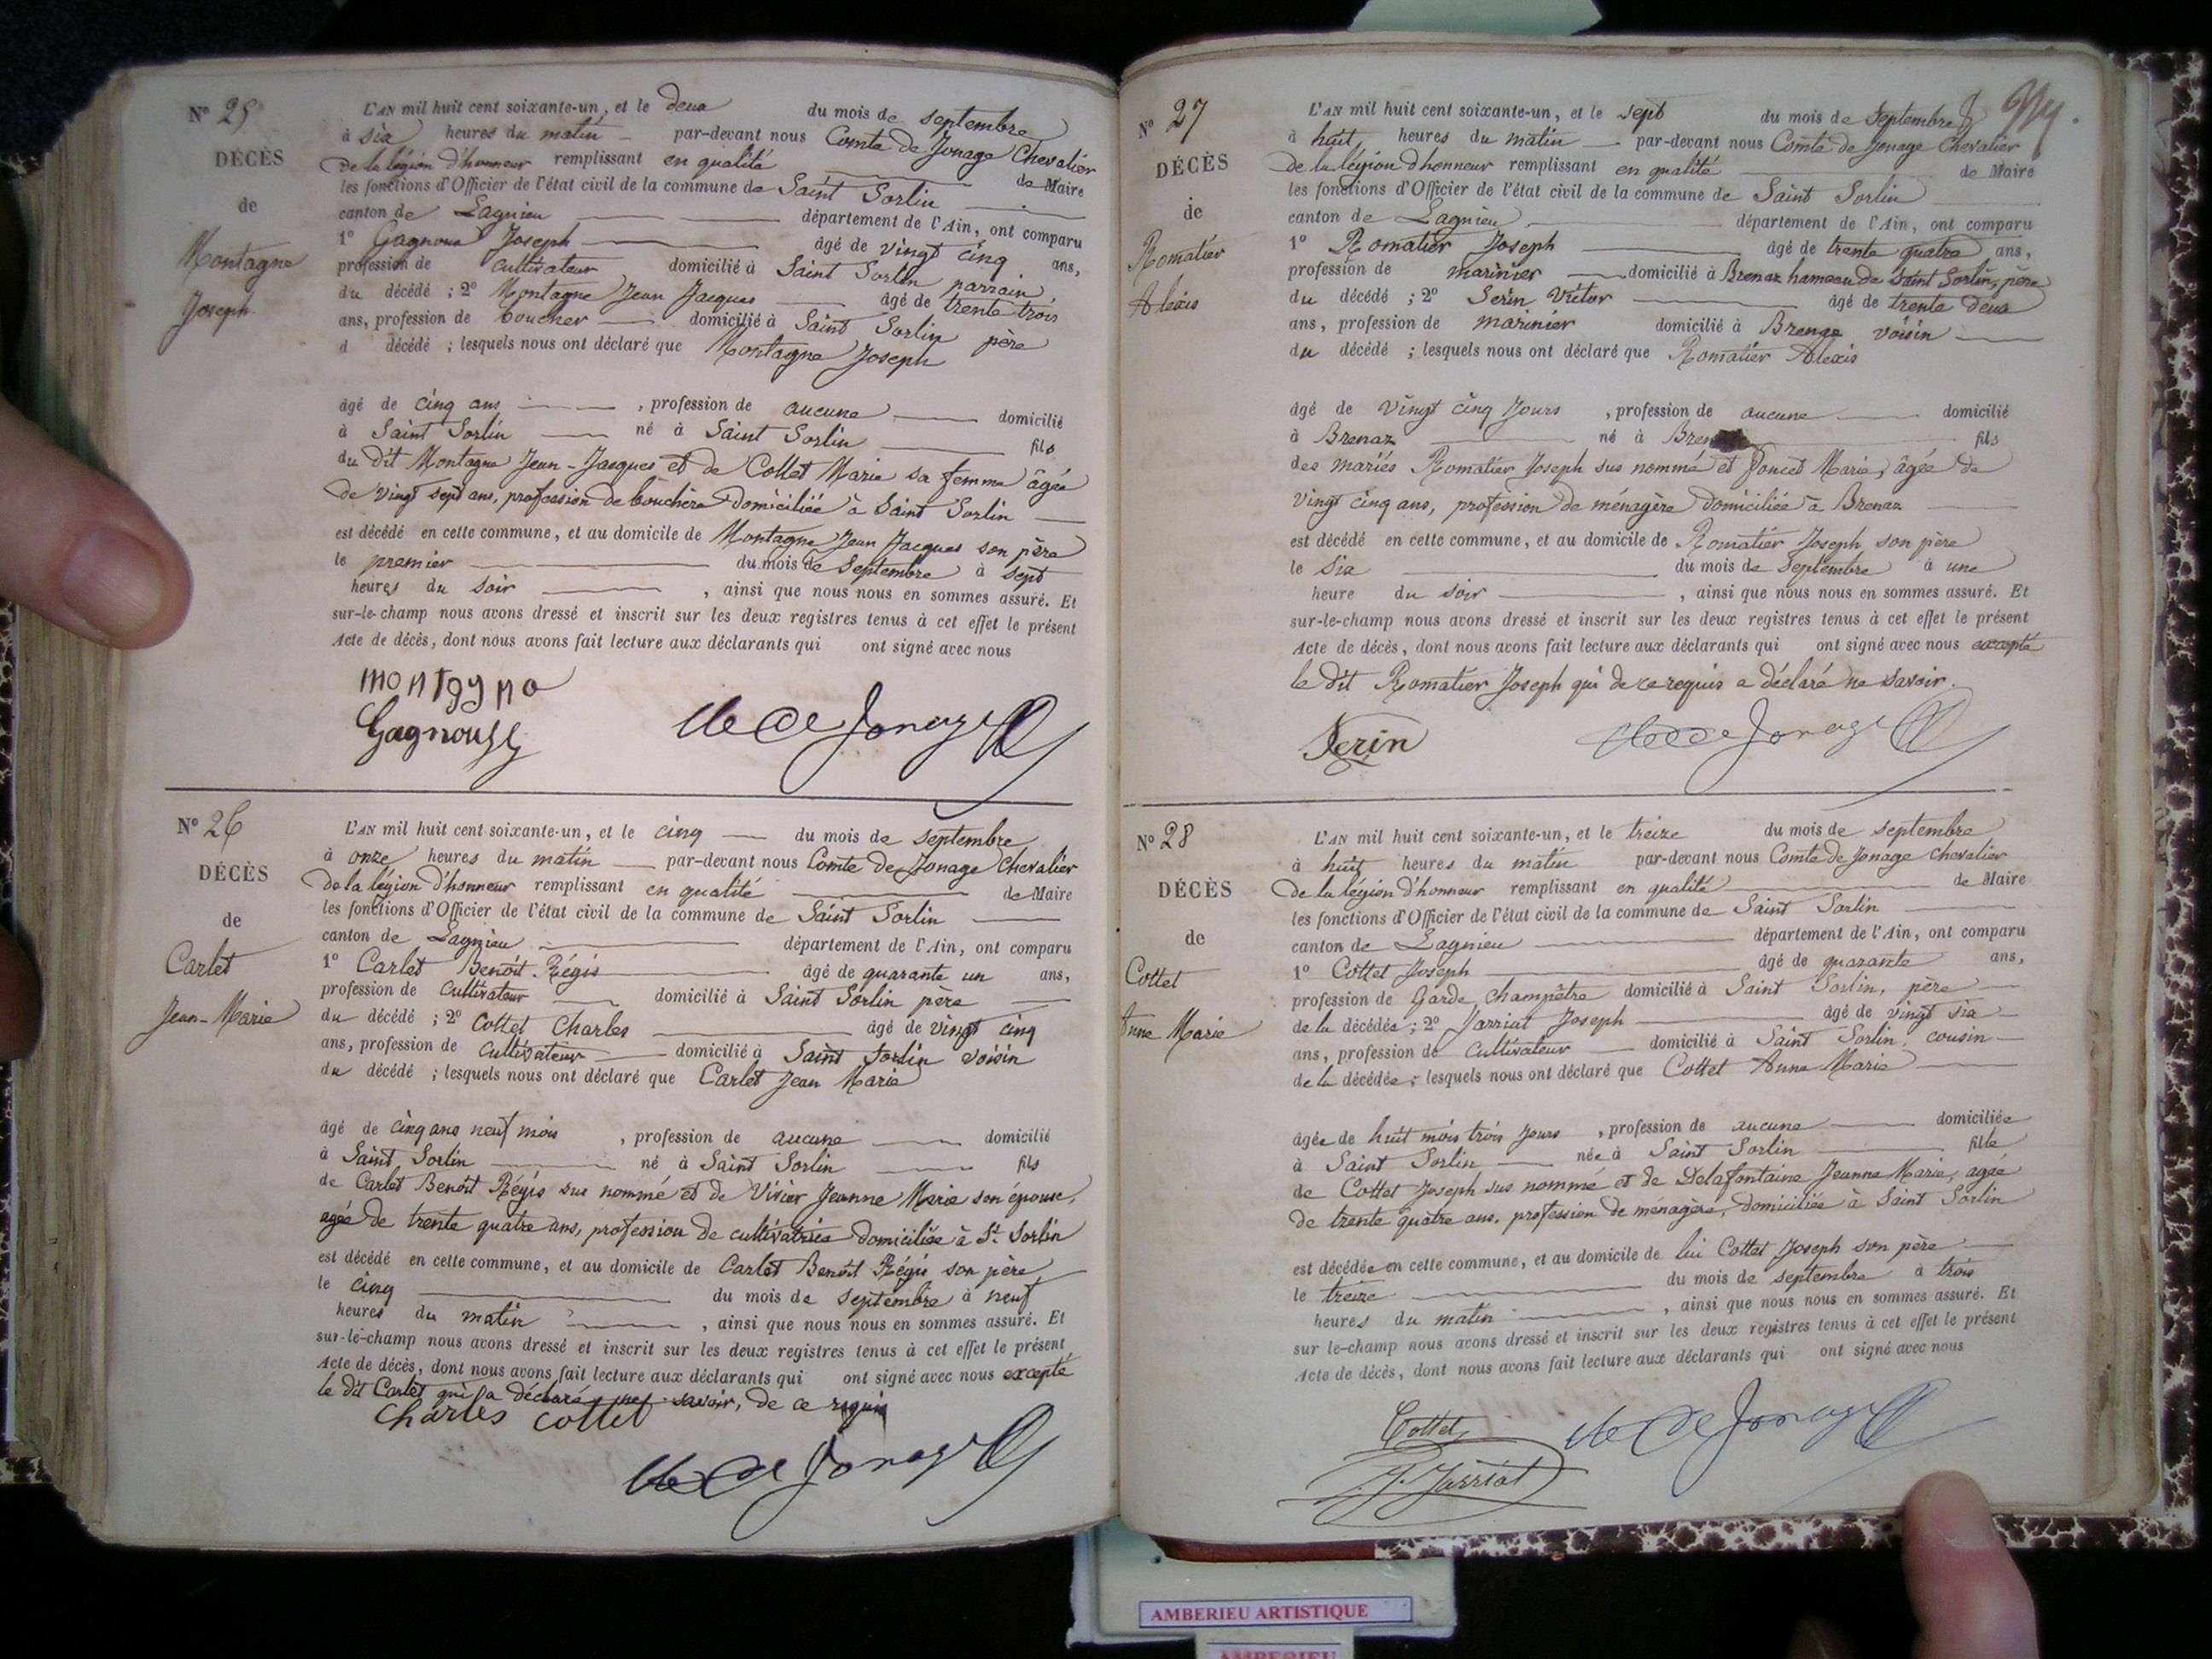 Nº 25
DÉCÈS
de
Montagne
Joseph
L'AN mil huit cent soixante-un, et le deux du mois de septembre
à six heures du matin par-devant nous Comte de Jonage Chevalier
de la légion d'honneur remplissant en qualité de Maire
les fonctions d'Officier de l'état civil de la commune de Saint Sorlin
canton de Lagnieu département de l'Ain, ont comparu
1º Gagnoux Joseph âgé de vingt cinq ans,
profession de cultivateur domicilié à Saint Sorlin parrain
du décédé ; 2º Montagne Jean Jacques âgé de trente trois
ans, profession de boucher domicilié à Saint Sorlin père
d décédé ; lesquels nous ont déclaré que Montagne Joseph
âgé de cinq ans , profession de aucune domicilié
à Saint Sorlin né à Saint Sorlin fils
du dit Montagne Jean-Jacques et de Collet Marie sa femme âgée
de vingt sept ans, profession de bouchère domiciliée à Saint Sorlin
est décédé en cette commune, et au domicile de Montagne Jean Jacques son père
le premier du mois de Septembre à sept
heures du soir , ainsi que nous nous en sommes assuré. Et
sur-le-champ nous avons dressé et inscrit sur les deux registres tenus à cet effet le présent
Acte de décès, dont nous avons fait lecture aux déclarants qui ont signé avec nous
Nº 26
DÉCÈS
de
Carlet
Jean-Marie
L'AN mil huit cent soixante-un, et le cinq du mois de septembre
à onze heures du matin par-devant nous Comte de Jonage Chevalier
de la légion d'honneur remplissant en qualité de Maire
les fonctions d'Officier de l'état civil de la commune de Saint Sorlin
canton de Lagnieu département de l'Ain, ont comparu
1º Carlet Benoît Régis âgé de quarante un ans,
profession de cultivateur domicilié à Saint Sorlin père
du décédé ; 2º Cottet Charles âgé de vingt cinq
ans, profession de cultivateur domicilié à Saint Sorlin voisin
du décédé ; lesquels nous ont déclaré que Carlet Jean Marie
âgé de cinq ans neuf mois , profession de aucune domicilié
à Saint Sorlin né à Saint Sorlin fils
de Carlet Benoît Régis sus nommé et de Vivier Jeanne Marie son épouse,
agée de trente quatre ans, profession de cultivatrice domiciliée à St. Sorlin
est décédé en cette commune, et au domicile de Carlet Benoît Régis son père
le cinq du mois de septembre à neuf
heures du matin , ainsi que nous nous en sommes assuré. Et
sur-le-champ nous avons dressé et inscrit sur les deux registres tenus à cet effet le présent
Acte de décès, dont nous avons fait lecture aux déclarants qui ont signé avec nous excepté
le dit Carlet qui a déclaré ne savoir, de ce requis
Charles Cottet
Nº 27
DÉCÈS
de
Romatier
Alexis
L'AN mil huit cent soixante-un, et le sept du mois de Septembre
à huit heures du matin par-devant nous Comte de Jonage Chevalier
de la légion d'honneur remplissant en qualité de Maire
les fonctions d'Officier de l'état civil de la commune de Saint Sorlin
canton de Lagnieu département de l'Ain, ont comparu
1º Romatier Joseph âgé de trente quatre ans,
profession de marinier domicilié à Brenaz hameau de Saint Sorlin, père
du décédé ; 2º Serin Victor âgé de trente deux
ans, profession de marinier domicilié à Brenaz voisin
du décédé ; lesquels nous ont déclaré que Romatier Alexis
âgé de vingt cinq Jours , profession de aucune domicilié
à Brenaz né à fils
des mariés Romatier Joseph sus nommé et Poncet Marie, âgée de
vingt cinq ans, profession de ménagère domiciliée à Brenaz
est décédé en cette commune, et au domicile de Romatier Joseph son père
le six du mois de Septembre à une
heure du soir , ainsi que nous nous en sommes assuré. Et
sur-le-champ nous avons dressé et inscrit sur les deux registres tenus à cet effet le présent
Acte de décès, dont nous avons fait lecture aux déclarants qui ont signé avec nous excepté
le dit Romatier Joseph qui de ce requis a déclaré ne savoir.
Serin
Nº 28
DÉCÈS
de
Cottet
Anne Marie
L'AN mil huit cent soixante-un, et le treize du mois de septembre
à huit heures du matin par-devant nous Comte de Jonage Chevalier
de la légion d'honneur remplissant en qualité de Maire
les fonctions d'Officier de l'état civil de la commune de Saint Sorlin
canton de Lagnieu département de l'Ain, ont comparu
1º Cottet Joseph âgé de quarante ans,
profession de Garde champêtre domicilié à Saint Sorlin, père
de la décédée ; 2º Jarriat Joseph âgé de vingt six
ans, profession de cultivateur domicilié à Saint Sorlin, cousin
de la décédée ; lesquels nous ont déclaré que Cottet Anne Marie
âgée de huit mois trois jours , profession de aucune domiciliée
à Saint Sorlin née à Saint Sorlin fille
de Cottet Joseph sus nommé et de Delafontaine Jeanne Marie, agée
de trente quatre ans, profession de ménagère, domiciliée à Saint Sorlin
est décédée en cette commune, et au domicile de lui Cottet Joseph son père
le treize du mois de septembre à trois
heures du matin , ainsi que nous nous en sommes assuré. Et
sur-le-champ nous avons dressé et inscrit sur les deux registres tenus à cet effet le présent
Acte de décès, dont nous avons fait lecture aux déclarants qui ont signé avec nous
Cottet
J. Jarriat
AMBERIEU ARTISTIQUE
AMBERIEU